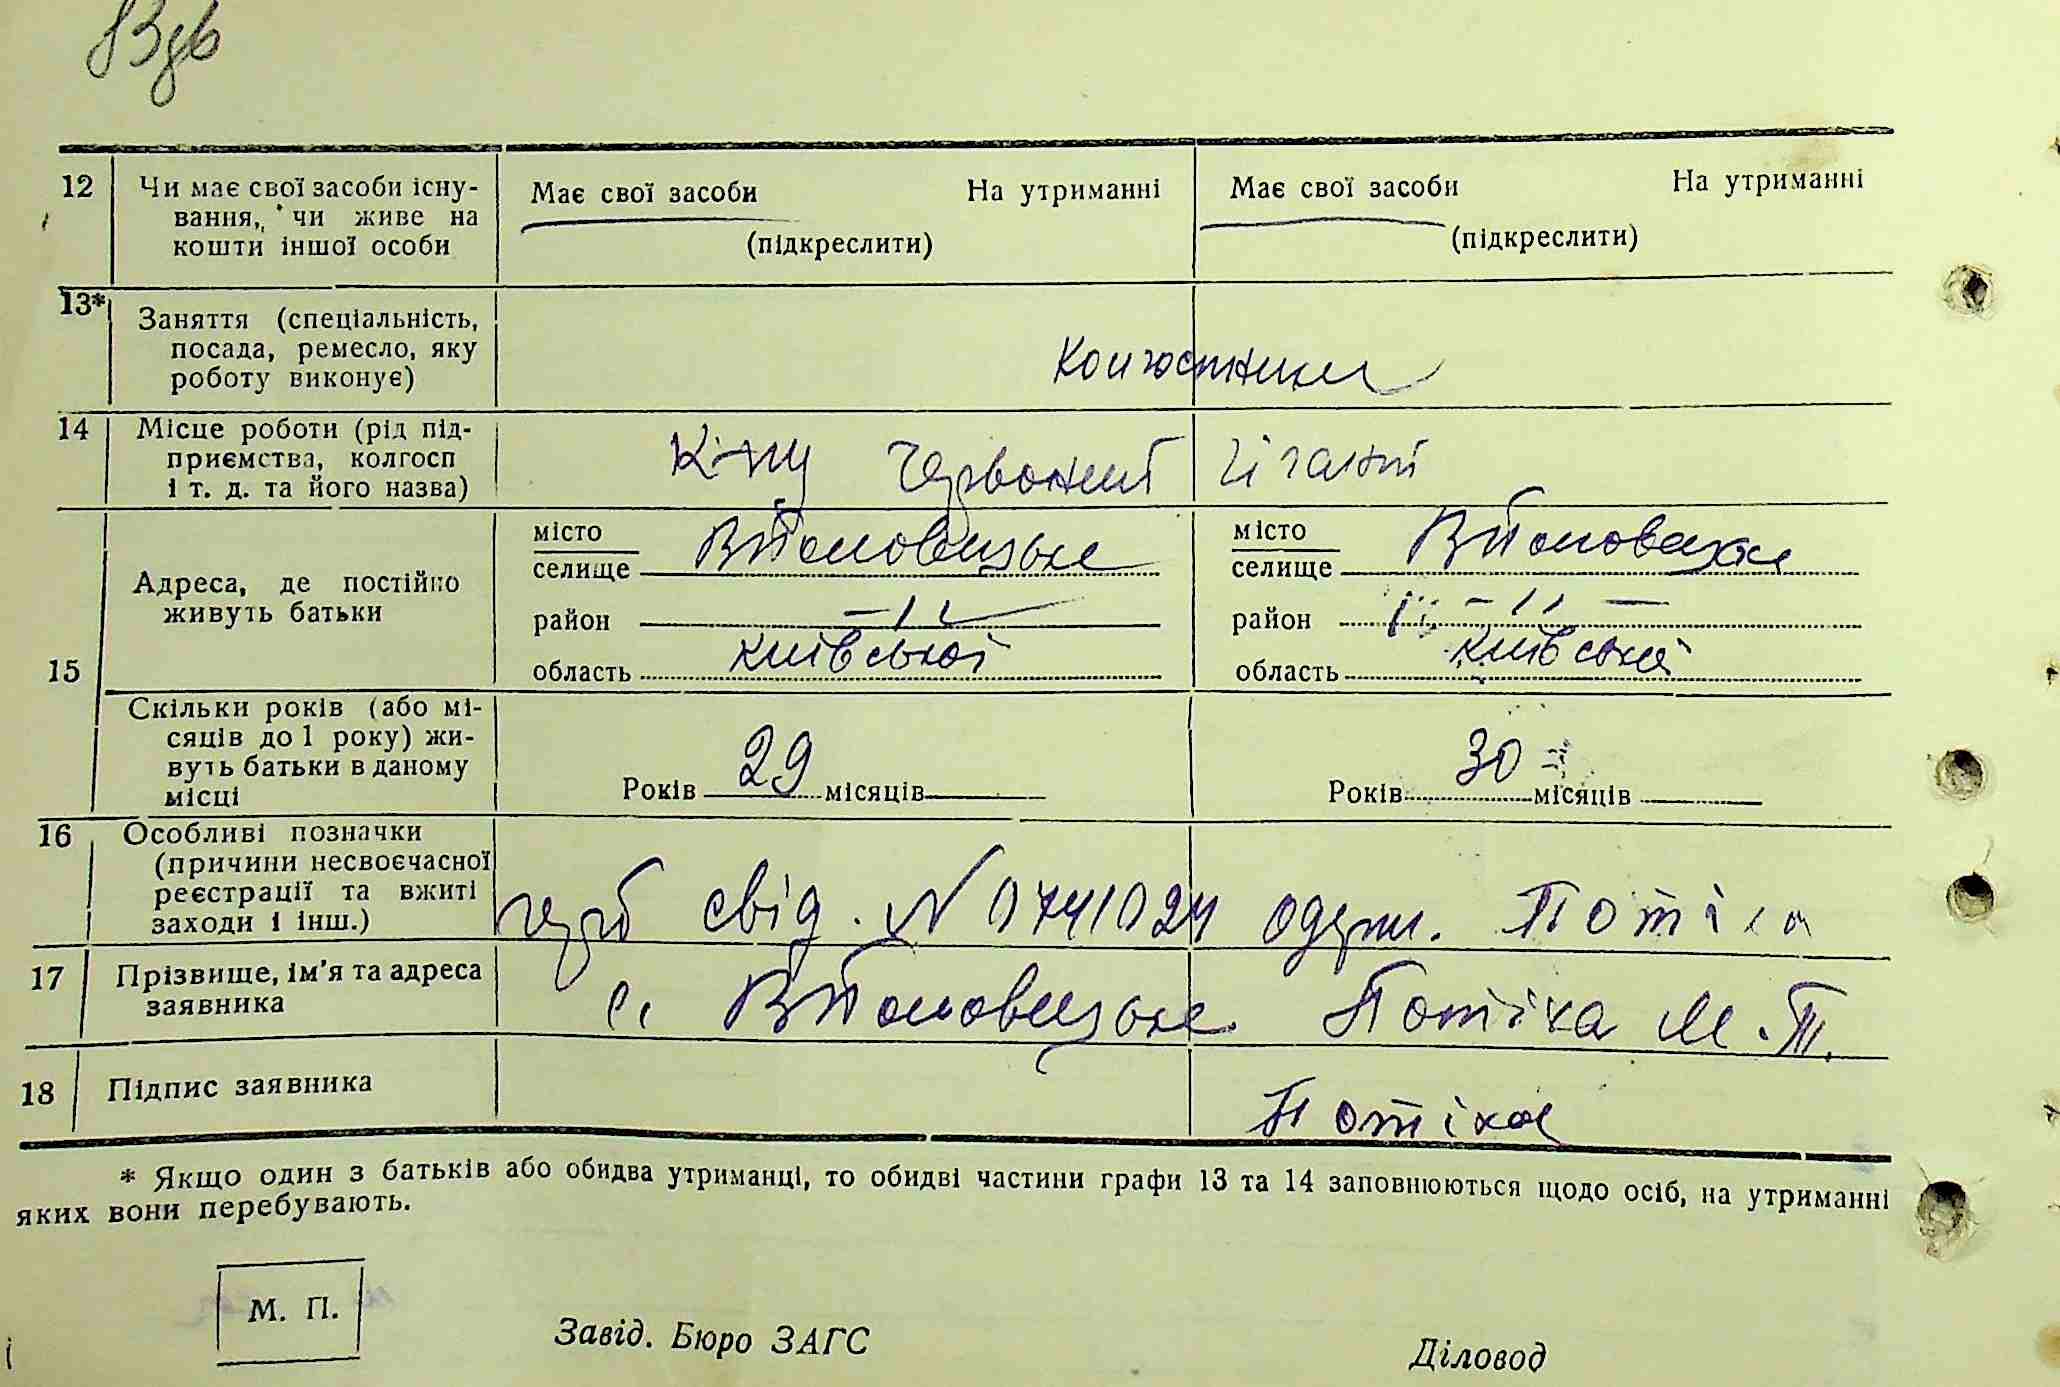 12 Чи має свої засоби існу-
вання, чи живе на
кошти іншої особи
Має свої засоби На утриманні
(підкреслити)
Має свої засоби На утриманні
(підкреслити)
13* Заняття (спеціальність,
посада, ремесло, яку
роботу виконує)
Колгоспники
14 Місце роботи (рід під-
приємства, колгосп
і т. д. та його назва)
Червоний гігант
15 Адреса, де постійно
живуть батьки
місто
селище В Половецьке
район -//-
область Київської
місто
селище В Половецьке
район -//-
область Київській
Скільки років (або мі-
сяців до 1 року) жи-
вуть батьки в даному
місці
Років 29 місяців
Років 30 місяців
16 Особливі позначки
(причини несвоєчасної
реєстрації та вжиті
заходи і інш.)
герб свід. № 0741024 одерж. Потіха
17 Прізвище, ім'я та адреса
заявника
с. В Половецьке Потіха М. Т.
18 Підпис заявника
Потіха
* Якщо один з батьків або обидва утриманці, то обидві частини графи 13 та 14 заповнюються щодо осіб, на утриманні
яких вони перебувають.
М. П.
Завід. Бюро ЗАГС
Діловод